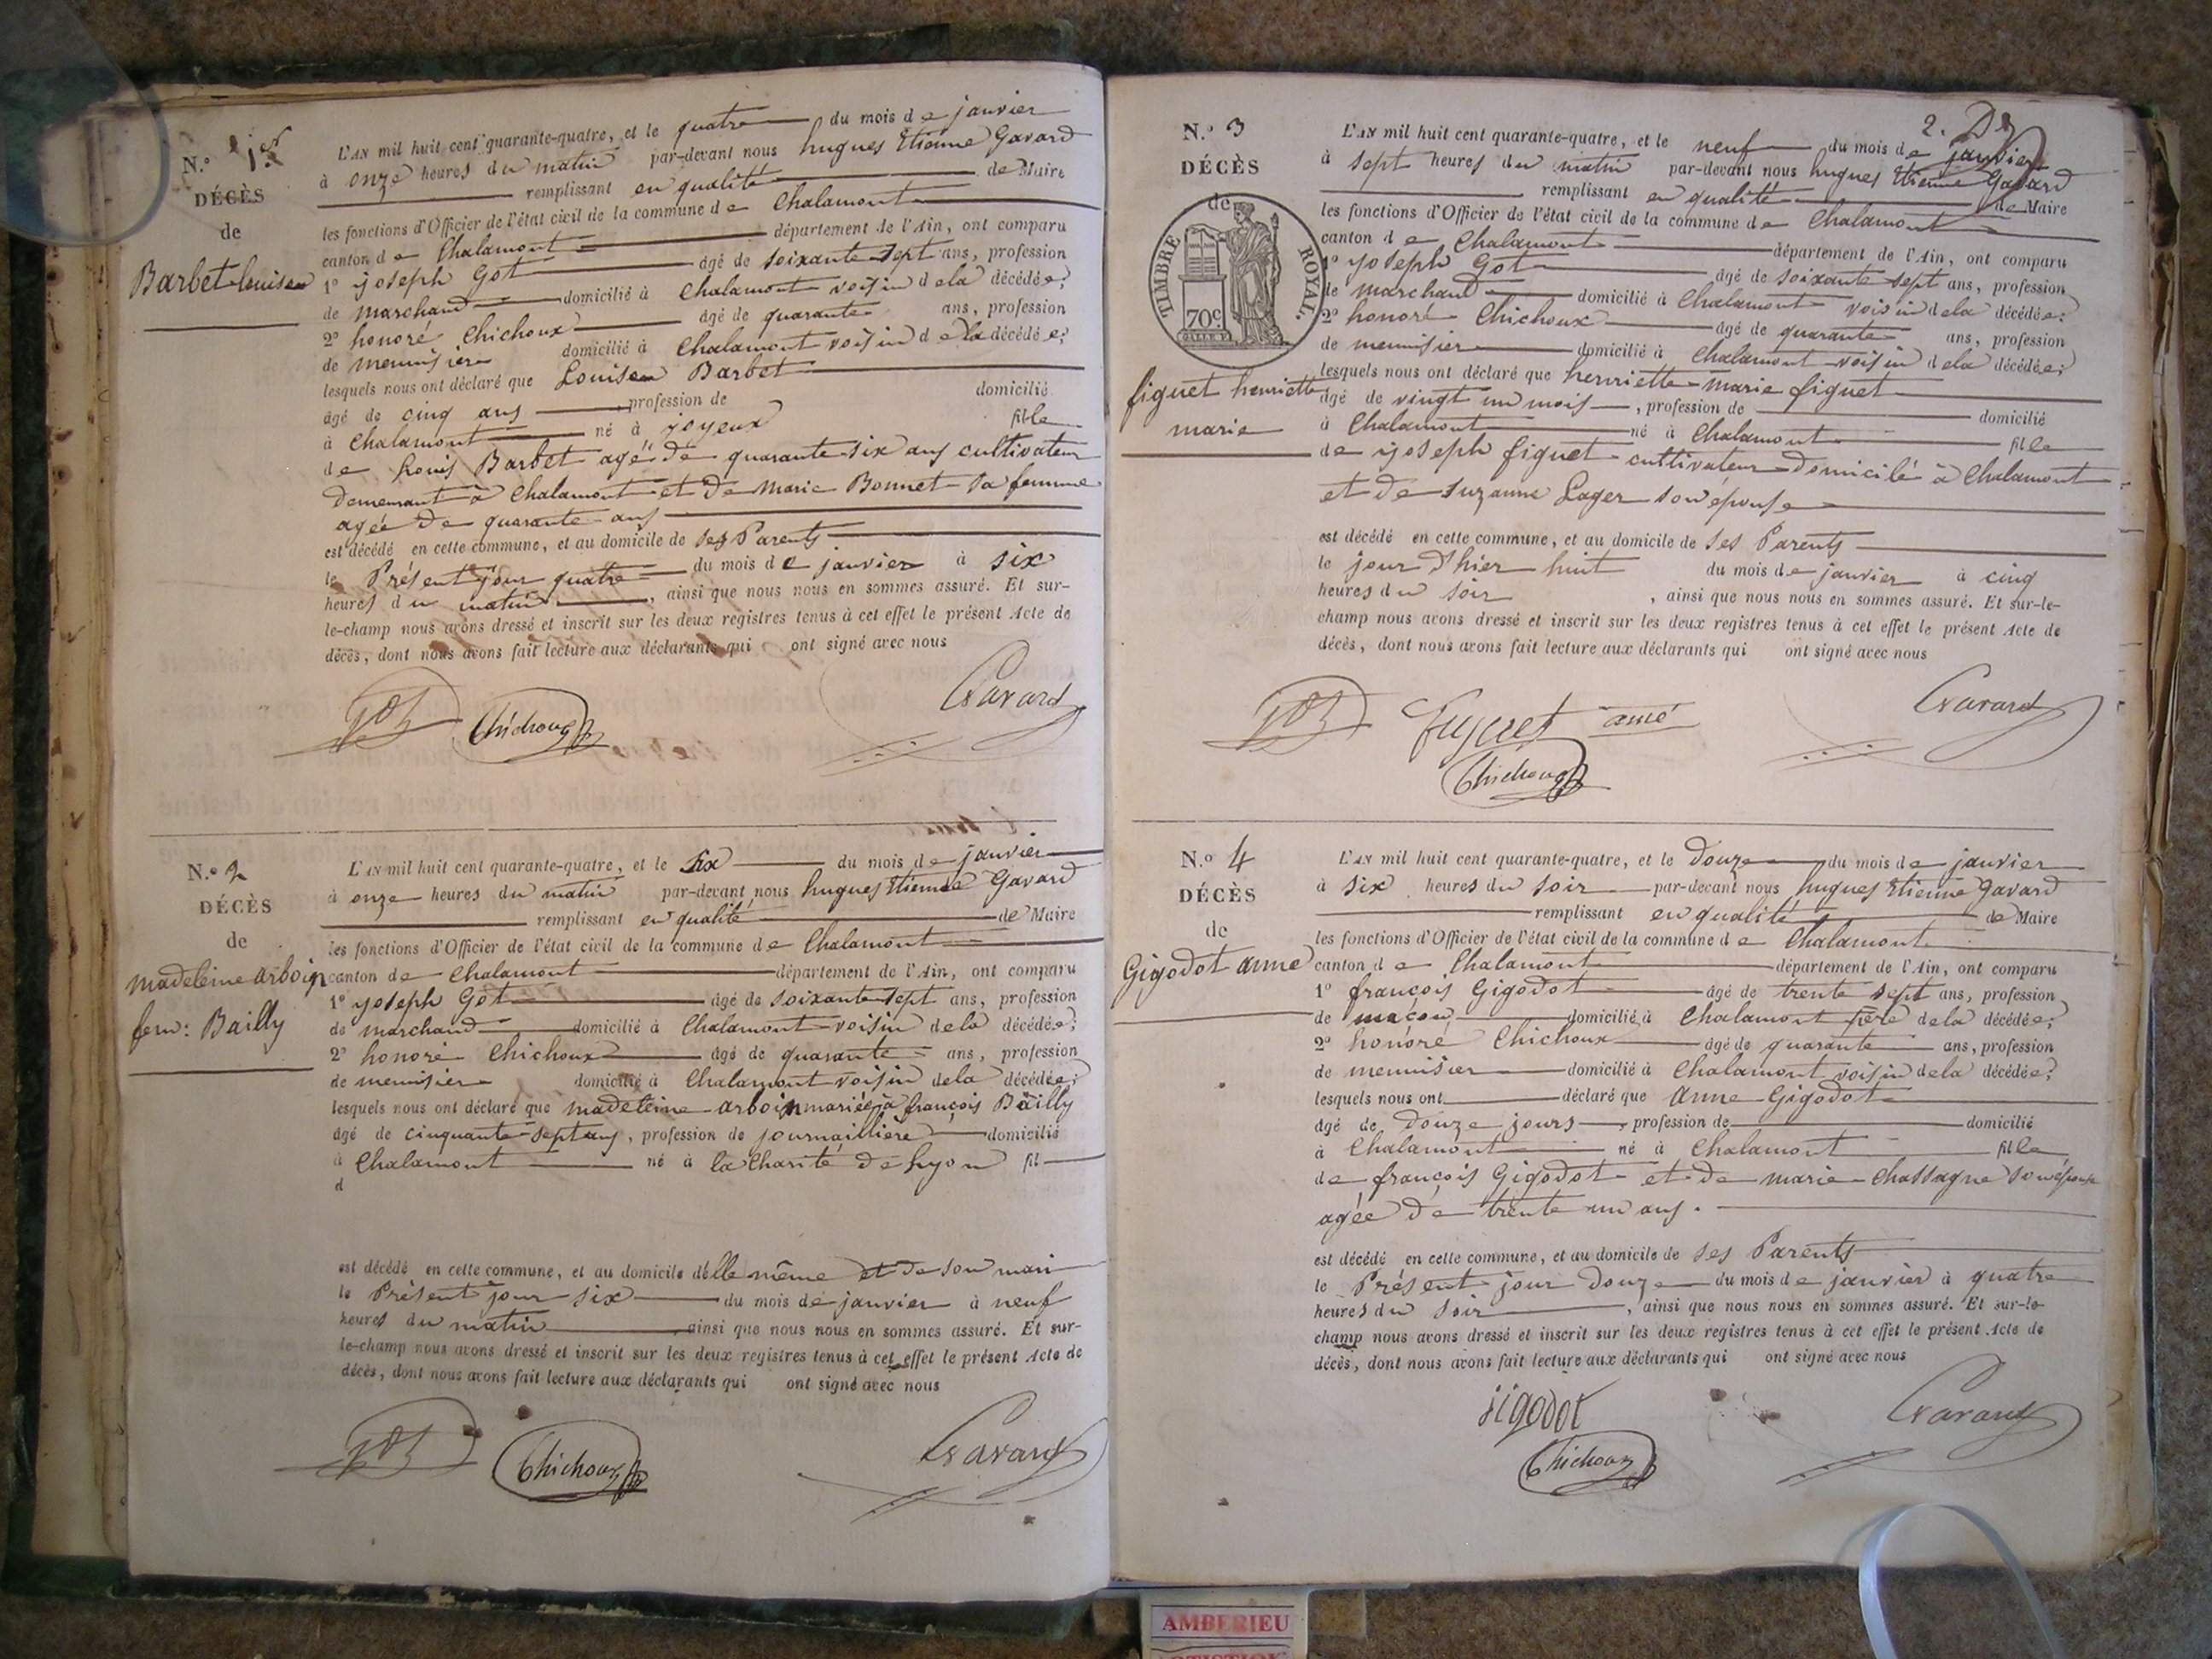 N.º 1er
DÉCÈS
de
Barbet louise
L'AN mil huit cent quarante-quatre, et le quatre du mois de janvier
à onze heures du matin par-devant nous hugues Etienne Gavard
remplissant en qualité de Maire
les fonctions d'Officier de l'état civil de la commune de Chalamont
canton de Chalamont département de l'Ain, ont comparu
1º joseph Got âgé de soixante sept ans, profession
de marchand domicilié à Chalamont voisin de la décédée;
2º honoré Chichoux âgé de quarante ans, profession
de menuisier domicilié à Chalamont voisin de la décédée;
lesquels nous ont déclaré que Louise Barbet
âgé de cinq ans, profession de domicilié
à Chalamont né à joyeux fille
de Louis Barbet agé de quarante six ans cultivateur
demeurant à Chalamont et de Marie Bonnet sa femme
agée de quarante ans
est décédé en cette commune, et au domicile de ses Parents
le Présent jour quatre du mois de janvier à six
heures du matin, ainsi que nous nous en sommes assuré. Et sur-
le-champ nous avons dressé et inscrit sur les deux registres tenus à cet effet le présent Acte de
décès, dont nous avons fait lecture aux déclarants qui ont signé avec nous
Got Chichoux Gavard
N.º 2
DÉCÈS
de
madeleine arboin
fem: Bailly
L'AN mil huit cent quarante-quatre, et le six du mois de janvier
à onze heures du matin par-devant nous hugues Etienne Gavard
remplissant en qualité de Maire
les fonctions d'Officier de l'état civil de la commune de Chalamont
canton de Chalamont département de l'Ain, ont comparu
1º joseph Got âgé de soixante sept ans, profession
de marchand domicilié à Chalamont voisin de la décédée;
2º honoré Chichoux âgé de quarante ans, profession
de menuisier domicilié à Chalamont voisin de la décédée;
lesquels nous ont déclaré que madeleine arboin mariée à françois Bailly
âgé de cinquante sept ans, profession de journaillière domicilié
à Chalamont né à la Charité de Lyon fil
d
est décédé en cette commune, et au domicile d'elle même et de son mari
le Présent jour six du mois de janvier à neuf
heures du matin ainsi que nous nous en sommes assuré. Et sur-
le-champ nous avons dressé et inscrit sur les deux registres tenus à cet effet le présent Acte de
décès, dont nous avons fait lecture aux déclarants qui ont signé avec nous
Got Chichoux Gavard
2.
N.º 3
DÉCÈS
de
TIMBRE ROYAL.
70c
figuet henriette
marie
L'AN mil huit cent quarante-quatre, et le neuf du mois de janvier
à sept heures du matin par-devant nous hugues Etienne Gavard
remplissant en qualité de Maire
les fonctions d'Officier de l'état civil de la commune de Chalamont
canton de Chalamont département de l'Ain, ont comparu
1º joseph Got âgé de soixante sept ans, profession
de marchand domicilié à Chalamont voisin de la décédée;
2º honoré Chichoux âgé de quarante ans, profession
de menuisier domicilié à Chalamont voisin de la décédée;
lesquels nous ont déclaré que henriette marie figuet
âgé de vingt un mois, profession de domicilié
à Chalamont né à Chalamont fille
de joseph figuet cultivateur domicilé à Chalamont
et de suzanne Lager son épouse
est décédé en cette commune, et au domicile de ses Parents
le jour d'hier huit du mois de janvier à cinq
heures du soir, ainsi que nous nous en sommes assuré. Et sur-le-
champ nous avons dressé et inscrit sur les deux registres tenus à cet effet le présent Acte de
décès, dont nous avons fait lecture aux déclarants qui ont signé avec nous
Got Gavard
Chichoux
N.º 4
DÉCÈS
de
Gigodot anne
L'AN mil huit cent quarante-quatre, et le douze du mois de janvier
à six heures du soir par-devant nous hugues Etienne Gavard
remplissant en qualité de Maire
les fonctions d'Officier de l'état civil de la commune de Chalamont
canton de Chalamont département de l'Ain, ont comparu
1º françois Gigodot âgé de trente sept ans, profession
de maçon domicilié à Chalamont père de la décédée;
2º honoré Chichoux âgé de quarante ans, profession
de menuisier domicilié à Chalamont voisin de la décédée;
lesquels nous ont déclaré que anne Gigodot
âgé de douze jours, profession de domicilié
à Chalamont né à Chalamont fille
de françois Gigodot et de marie Chassagne son épouse
agée de trente un ans.
est décédé en cette commune, et au domicile de ses Parents
le Présent jour douze du mois de janvier à quatre
heures du soir, ainsi que nous nous en sommes assuré. Et sur-le-
champ nous avons dressé et inscrit sur les deux registres tenus à cet effet le présent Acte de
décès, dont nous avons fait lecture aux déclarants qui ont signé avec nous
jigodot Gavard
Chichoux
AMBERIEU